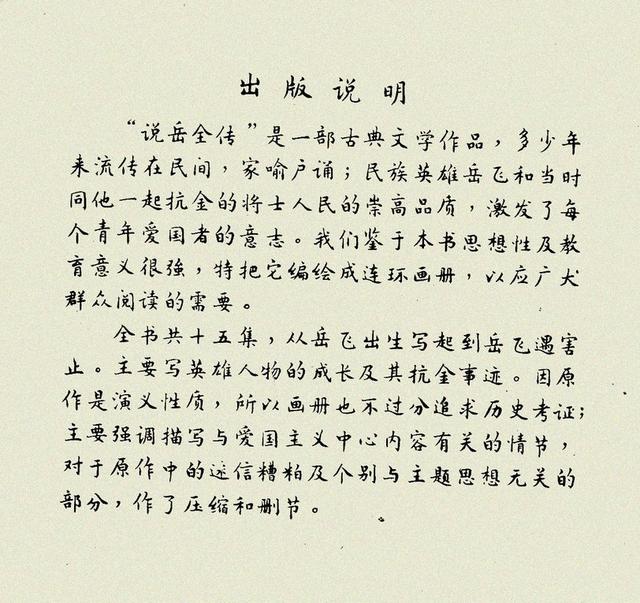 出版说明
“说岳全传”是一部古典文学作品，多少年
来流传在民间，家喻户诵；民族英雄岳飞和当时
同他一起抗金的将士人民的崇高品质，激发了每
个青年爱国者的意志。我们鉴于本书思想性及教
育意义很強，特把它编绘成连环画册，以应广大
群众阅读的需要。
全书共十五集，从岳飞出生写起到岳飞遇害
止。主要写英雄人物的成长及其抗金事迹。因原
作是演义性质，所以画册也不过分追求历史考证；
主要强调描写与爱国主义中心内容有关的情节，
对于原作中的迷信糟粕及个别与主题思想无关的
部分，作了压缩和删节。